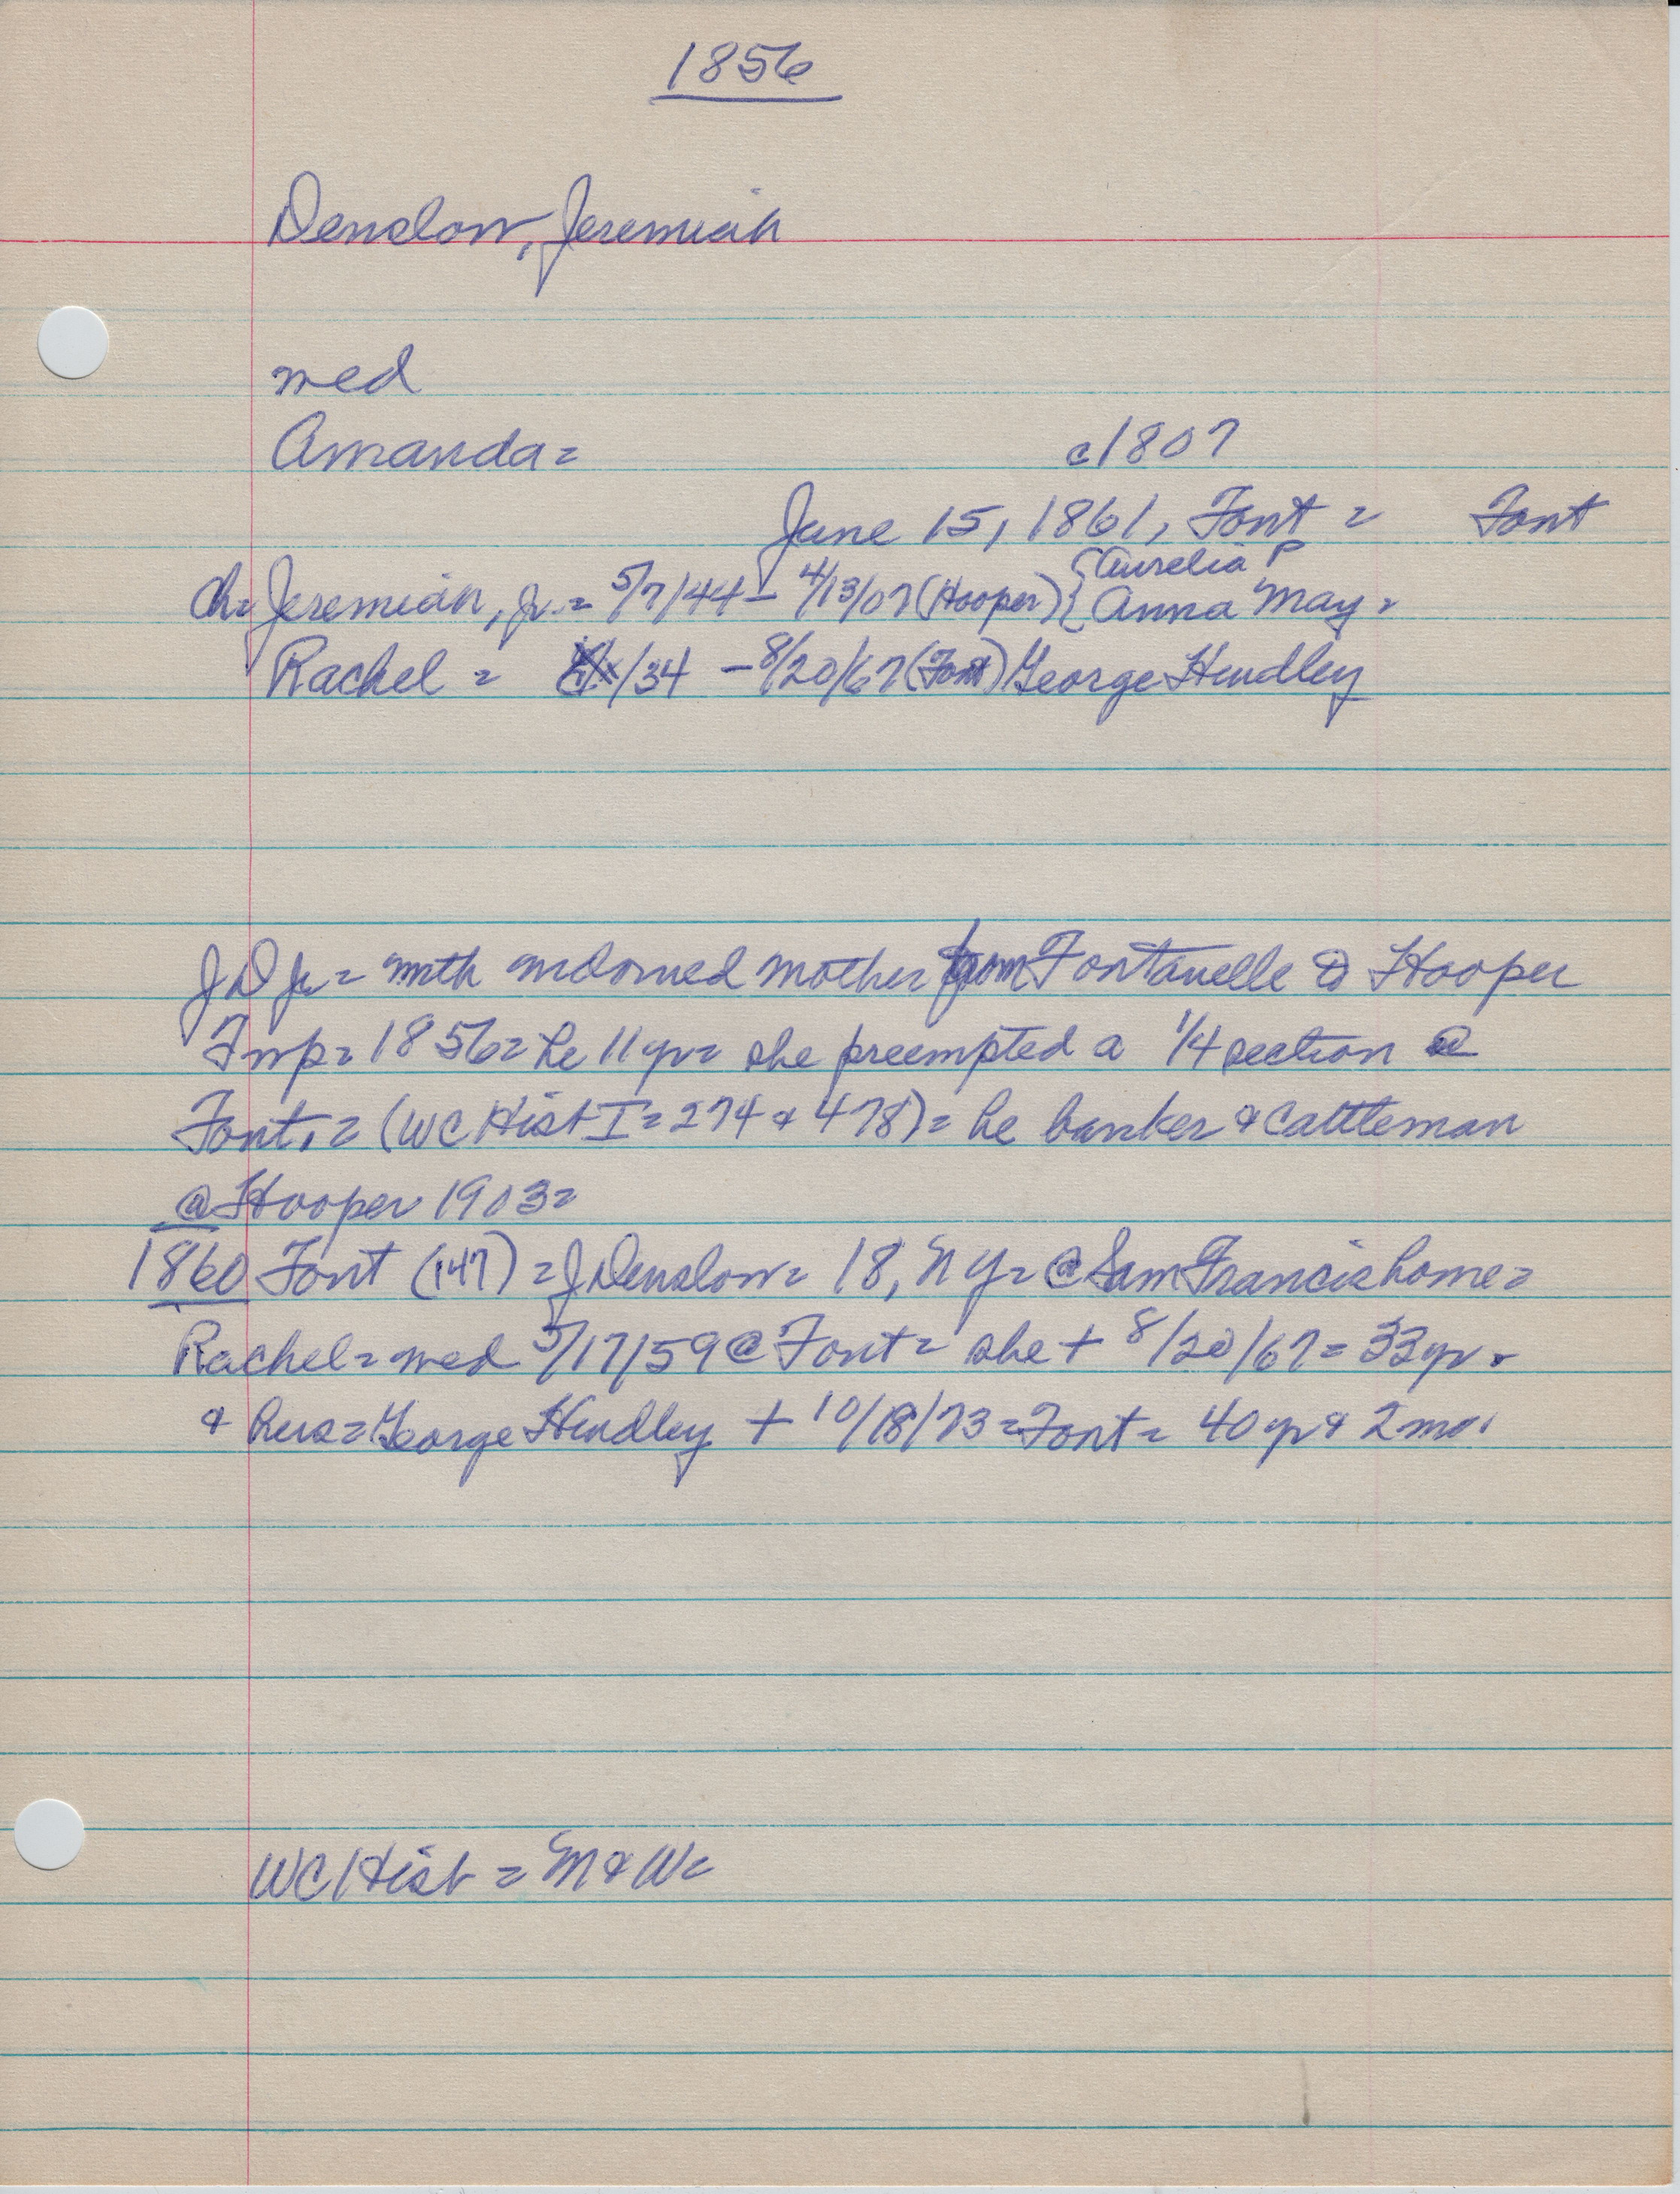 1856
Denslow, Jeremiah
wed
Amanda = c1807
June 15, 1861, Font = Font
ch= Jeremiah, Jr. = 5/7/44 - 4/13/07 (Hooper) { Aurelia P
{ Anna May =
Rachel = /34 - 8/20/67 (Font) George Hindley
J D Jr = with widowed mother from Fontanelle to Hooper
Twp = 1856 = he 11 yr = she preempted a 1/4 section @
Font. = (WC Hist I = 274 & 478) = he banker & cattleman
@ Hooper 1903 =
1860 Font (147) = J Denslow = 18, NY = @ Sam Francis home =
Rachel = wed 5/17/59 @ Font = she + 8/20/67 = 33 yr.
& hus = George Hindley + 10/18/73 = Font = 40 yr & 2 mo.
WC Hist = M & W =